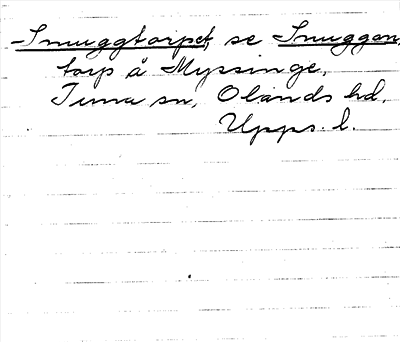 -Snuggtorpet, se Snuggan,
torp å Myssinge,
Tuna sn, Olands hd,
Upps. l.